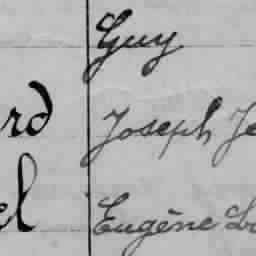 Guy
rd Joseph Je
el Eugène Lo